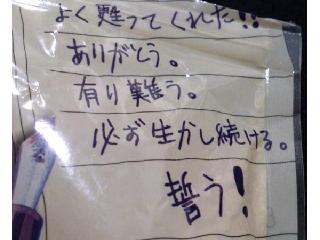 よく甦ってくれた!!
ありがとう。
有り難う。
必ず生かし続ける。
誓う!